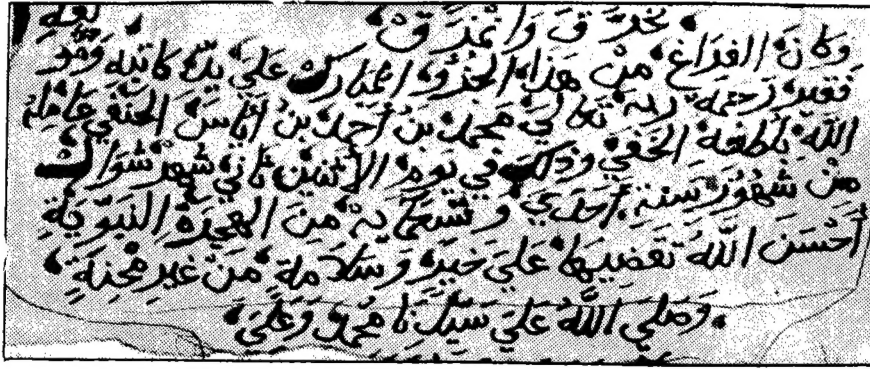 تخرق وانمزق
وكان الفراغ من هذا الجزو المبارك علي يد كاتبه وهو
فقير رحمة ربه تعالي محمد بن أحمد بن أياس الحنفي عامله
الله بلطفه الخفي وذلك في يوم الاثنين ثاني شهر شوال
من شهور سنة أحدي وتسعماية من الهجرة النبوية
أحسن الله تقضيها علي خير وسلامة من غير محنة
وصلي الله علي سيدنا محمد وعلي